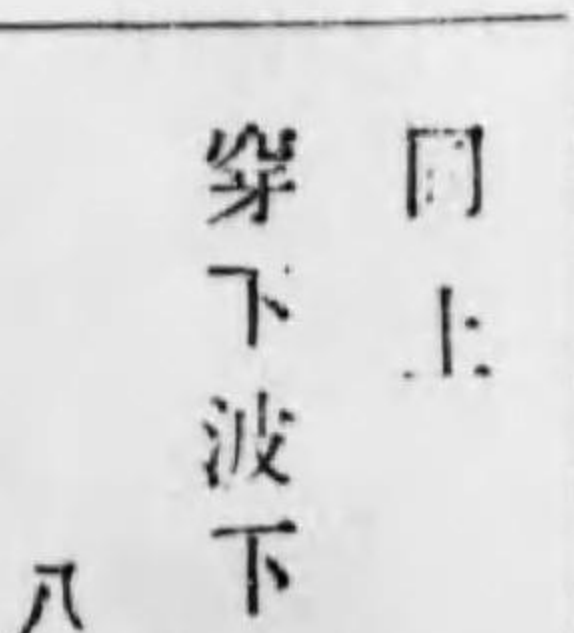 同上
穿下波下
八